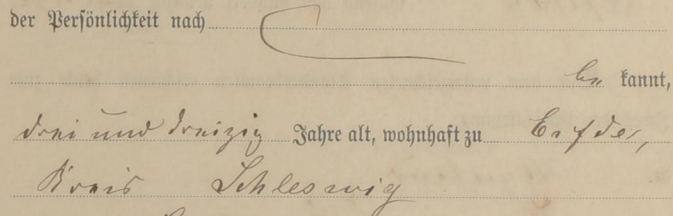 der Persönlichkeit nach
be kannt,
drei und dreizig Jahre alt, wohnhaft zu Erfde,
Kreis Schleswig